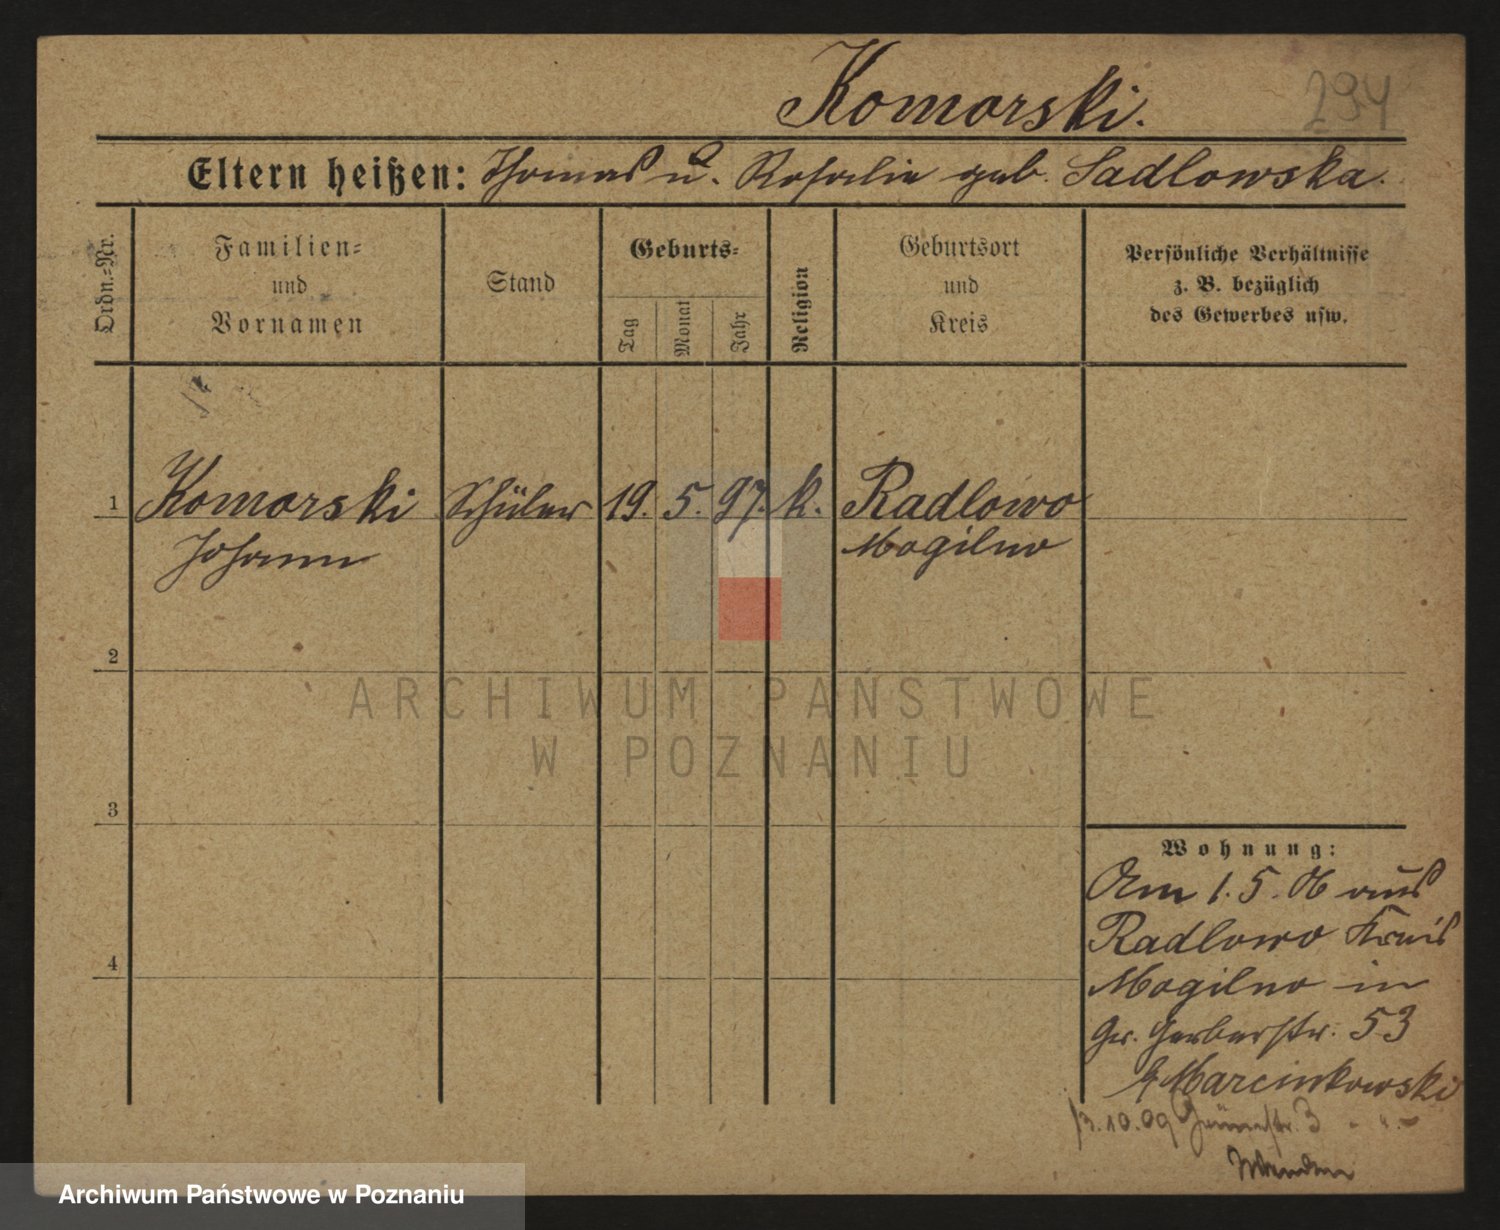 294
Komorski.
Eltern heißen: Thomas u. Rosalie geb. Sadlowska.
Ordn.-Nr.
Familien-
und
Vornamen
Stand
Geburts-
Tag
Monat
Jahr
Religion
Geburtsort
und
Kreis
Persönliche Verhältnisse
z. B. bezüglich
des Gewerbes usw.
1 Komorski Schüler 19. 5. 97. k. Radlowo
Johann Mogilno
2
3
4
ARCHIWUM PAŃSTWOWE
W POZNANIU
Wohnung:
Am 1. 5. 06 aus
Radlowo Kreis
Mogilno in
Gr. Gerberstr. 53
Marcinkowski
13.10.09 Grünestr. 3 - " -
Archiwum Państwowe w Poznaniu